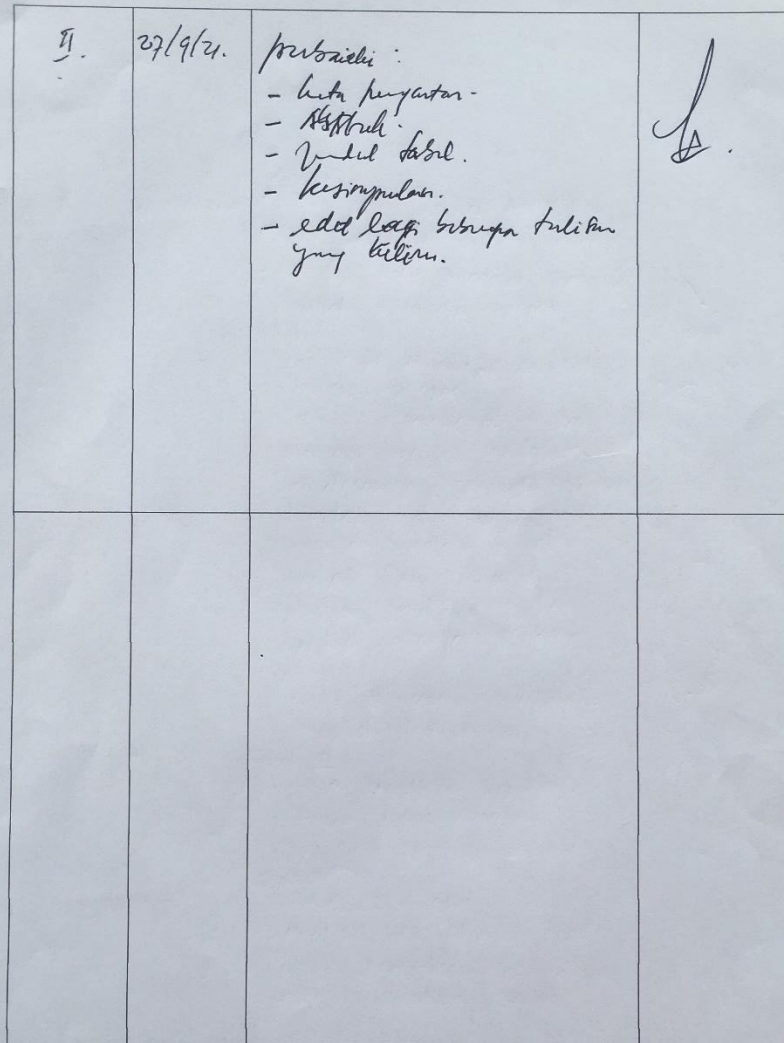 II.
27/9/21.
perbaiki :
- kata pengantar.
- Abstrak.
- Judul tabel.
- kesimpulan.
- edit lagi beberapa tulisan
yang keliru.